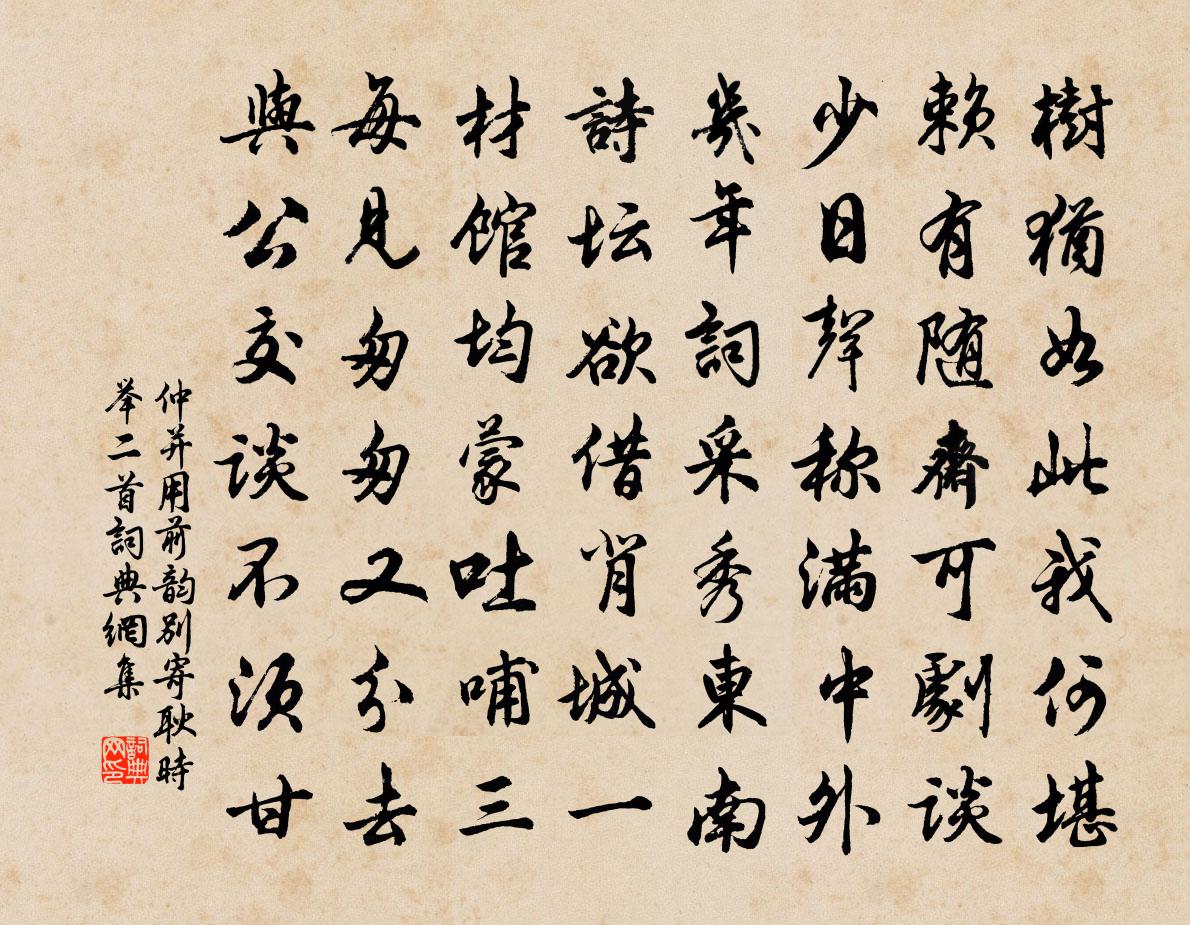 樹猶如此我何堪
赖有随齋可劇谈
少日聲称滿中外
幾年詞采秀東南
詩坛欲借背城一
材館均蒙吐哺三
每見匆匆又分去
與公交谈不须甘
仲并用前韵别寄耿時
举二首詞典網集
詞典网印